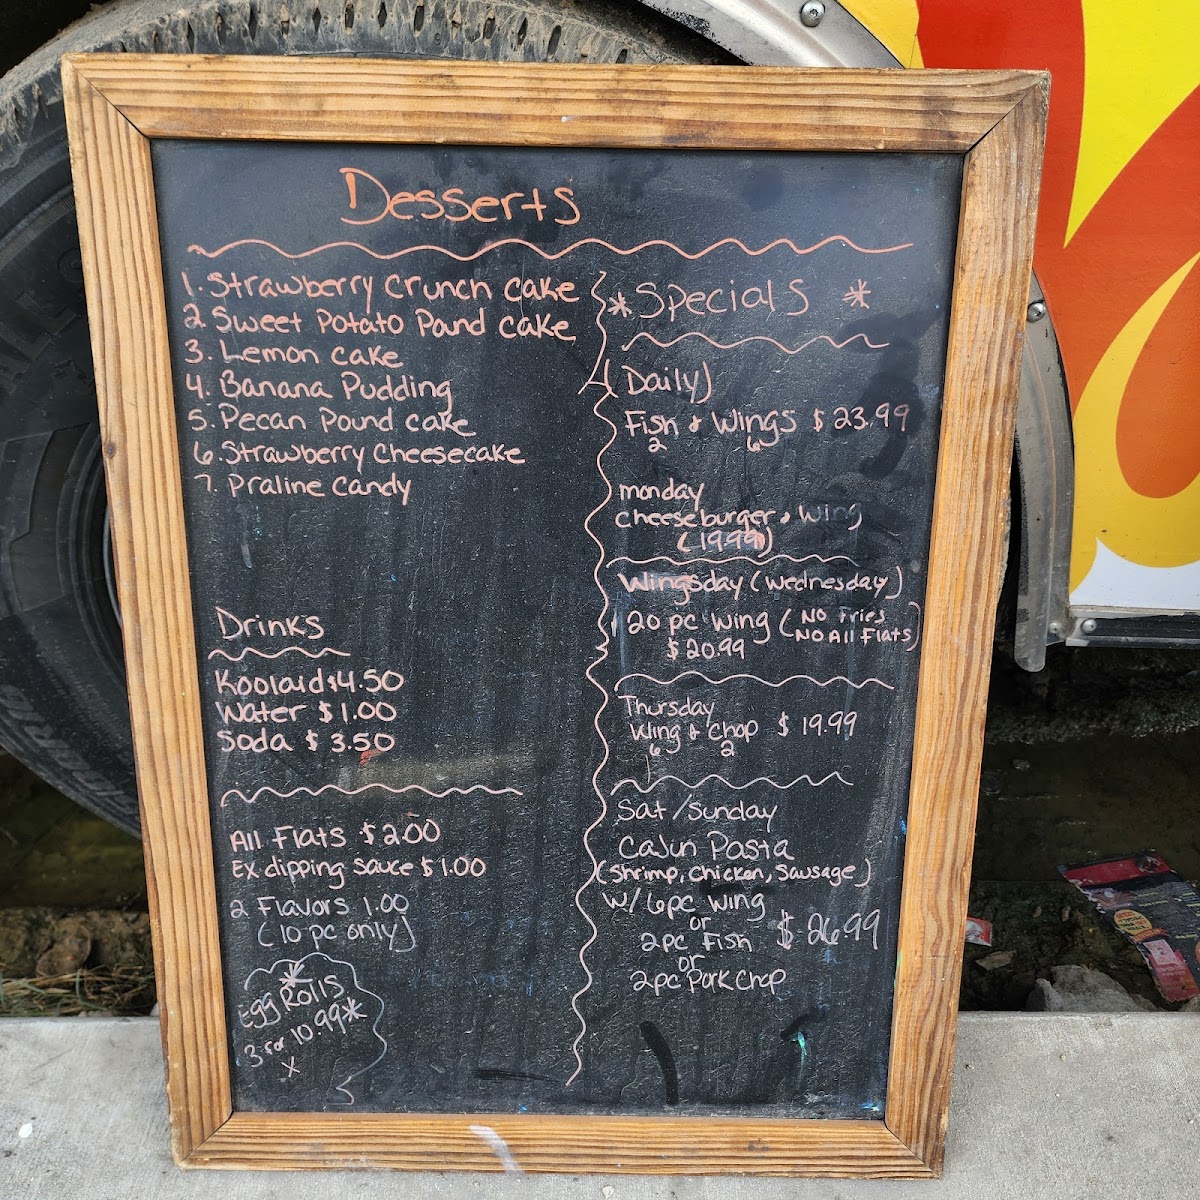 Desserts
1. Strawberry Crunch Cake
2 Sweet Potato Pound Cake
3. Lemon cake
4. Banana Pudding
5. Pecan Pound Cake
6. Strawberry Cheesecake
7. Praline Candy
Drinks
Koolaid $4.50
Water $1.00
Soda $3.50
All Flats $2.00
Ex. dipping Sauce $1.00
2 Flavors 1.00
(10 pc only)
*
Egg Rolls
3 for 10.99*
x
*Specials *
(Daily)
Fish & Wings $23.99
2 6
monday
Cheeseburger & Wing
(19.99)
Wingsday (Wednesday)
20 pc Wing (No Fries
No All Flats)
$20.99
Thursday
Wing & Chop $19.99
6 2
Sat/Sunday
Cajun Pasta
(Shrimp, Chicken, Sausage)
W/ 6pc Wing
or
2pc Fish $26.99
or
2pc Pork Chop